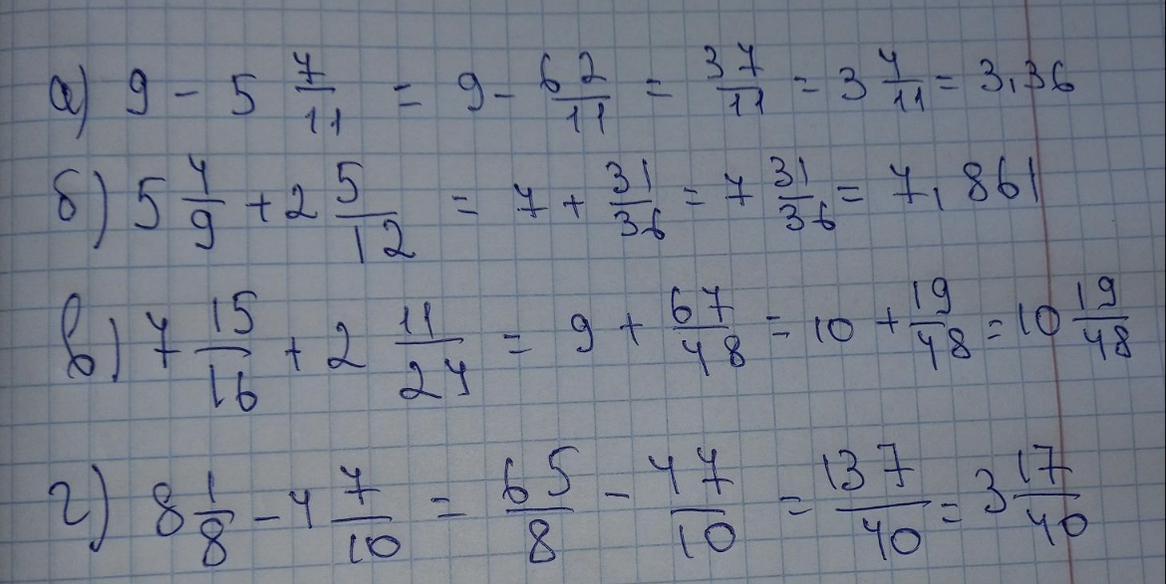 а) 9 - 5 7/11 = 9 - 62/11 = 37/11 = 3 4/11 = 3,36
б) 5 4/9 + 2 5/12 = 7 + 31/36 = 7 31/36 = 7,861
в) 7 15/16 + 2 11/24 = 9 + 67/48 = 10 + 19/48 = 10 19/48
г) 8 1/8 - 4 7/10 = 65/8 - 47/10 = 137/40 = 3 17/40